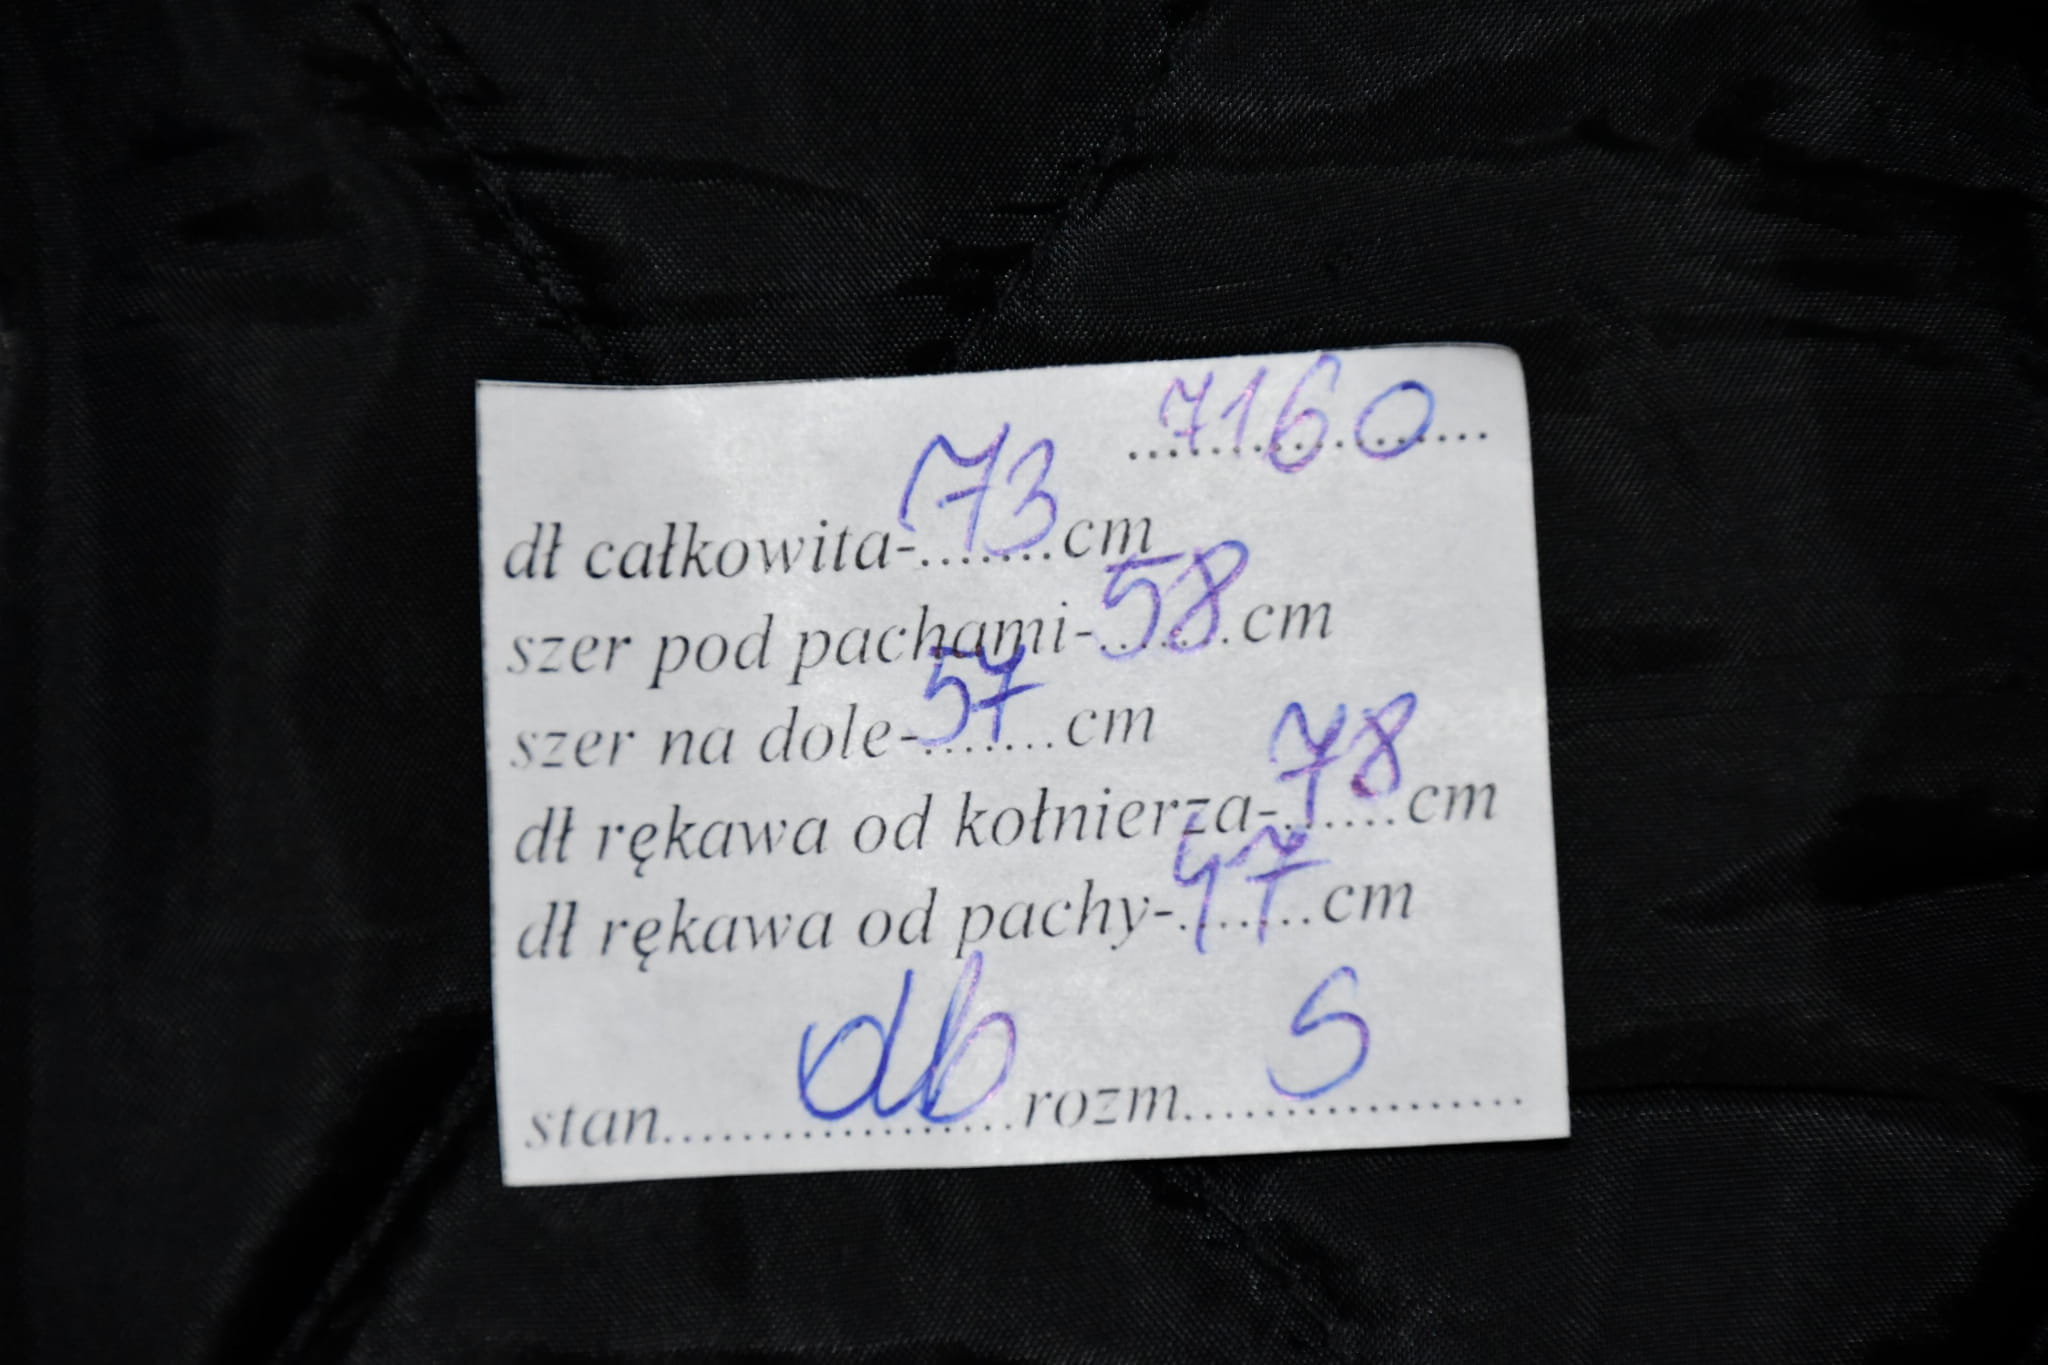 7160
dł całkowita-73cm
szer pod pachami-58cm
szer na dole-57cm
dł rękawa od kołnierza-78cm
dł rękawa od pachy-47cm
stan db rozm S